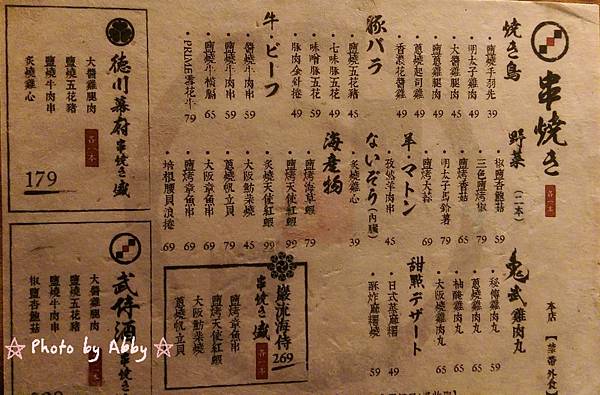 串焼き
各一本
焼き鳥
・鹽燒手羽先 39
・明太子雞肉 49
・大醬雞腿肉 45
・鹽蔥雞腿肉 49
・蔥燒起司雞 49
・香濃花醬雞 49
豚バラ
・鹽燒五花豬 45
・七味五花豬 49
・味噌豚五花 59
・豚肉金針捲 49
牛・ビーフ
・醬燒牛肉串 59
・鹽燒牛肉串 59
・鹽燒牛橫膈 65
・PRIME雪花牛 79
野菜
(二本)
・椒鹽杏鮑菇 59
・三色鹽烤椒 79
・鹽烤香菇 65
・明太子馬鈴薯 79
・鹽烤大蒜
羊・マトン
・孜然羊肉串 45
ないぞう(內臟)
・炙燒雞心 39
海産物
・鹽烤海草蝦 79
・鹽烤天使紅蝦 99
・鹽燒天使紅蝦 99
・大阪魴柴燒 45
・蔥燒帆立貝 79
・大阪章魚串 69
・鹽烤章魚串 69
・培根腰貝浪捲 69
鬼武雞肉丸
・秘傳雞肉丸 59
・蔥燒雞肉丸 65
・柚醃雞肉丸
・大阪燒雞肉丸 65
甜點デザート
・日式蒸麻糬 49
・酥炸麻糬燒 59
本店
德川幕府串焼き盛
各一本
大醬雞腿肉
鹽燒五花豬
鹽燒牛肉串
炙燒雞心
179
武侍酒串焼き盛
一本
大醬雞腿肉
鹽燒五花豬
鹽燒牛肉串
椒鹽杏鮑菇
嚴流海侍串焼き盛
各一本
269
鹽烤章魚串
鹽烤天使紅蝦
大阪魴柴燒
蔥燒帆立貝
☆ Photo by Abby ☆